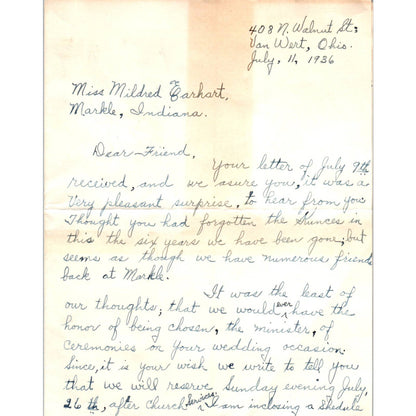 408 N. Walnut St;
Van Wert, Ohio.
July, 11, 1936
Miss Mildred Earhart,
Markle, Indiana.
Dear-Friend,
Your letter of July 9th
received, and we asure you, it was a
Very pleasant surprise, to hear from you
Thought you had forgotten the in
this the six years we have been gone; but
seems as though we have numerous friends
back at Markle.
It was the least of
our thoughts; that we would ever have the
honor of being chosen, the minister, of
ceremonies on your wedding occasion.
Since, it is your wish we write to tell you
that we will reserve Sunday evening July,
26th, after Church Services, I am inclosing a shedule